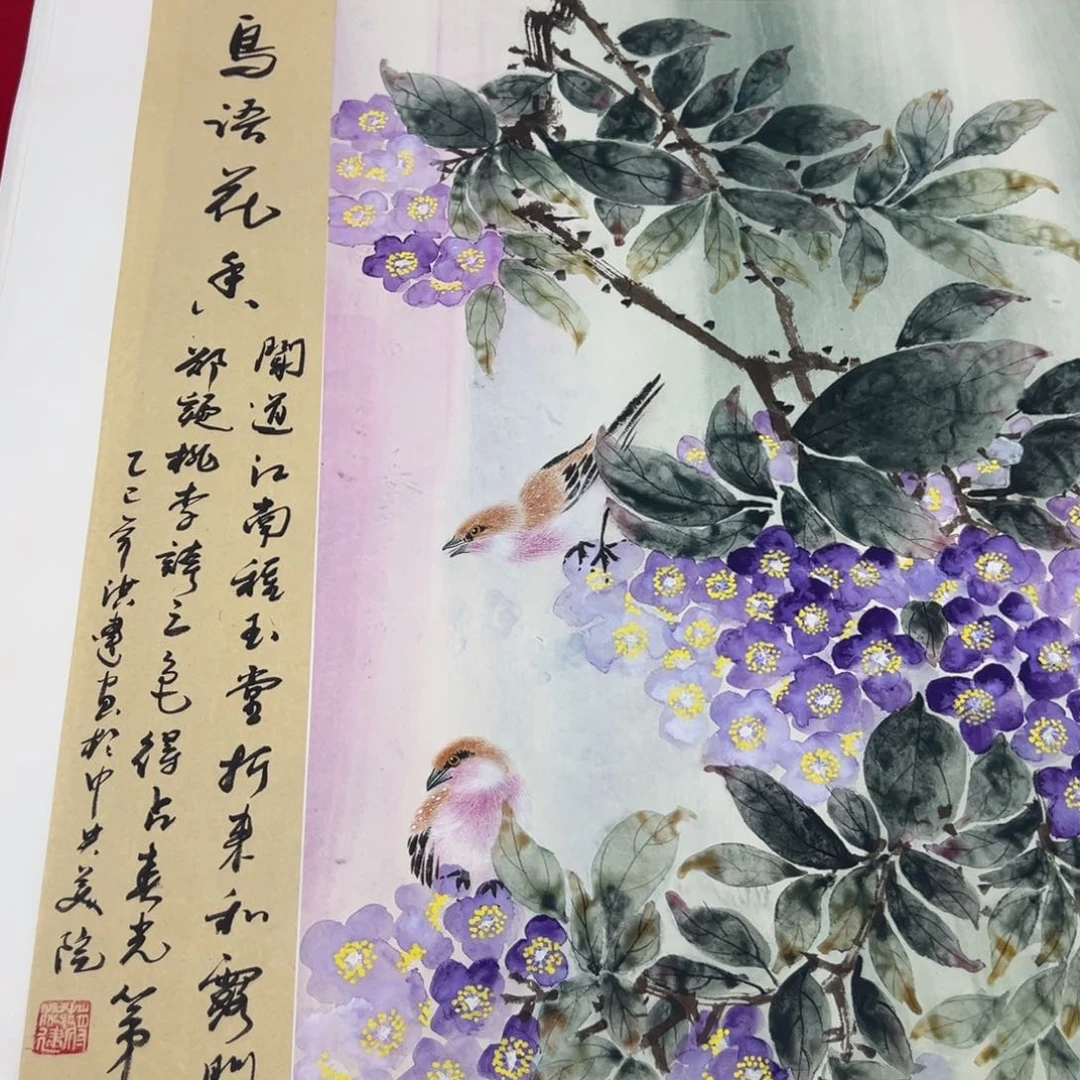 鳥语花香
聞道江南種玉堂折来和露
郤疑桃李誇三色得占春光第
乙巳年洪建画於中央美院